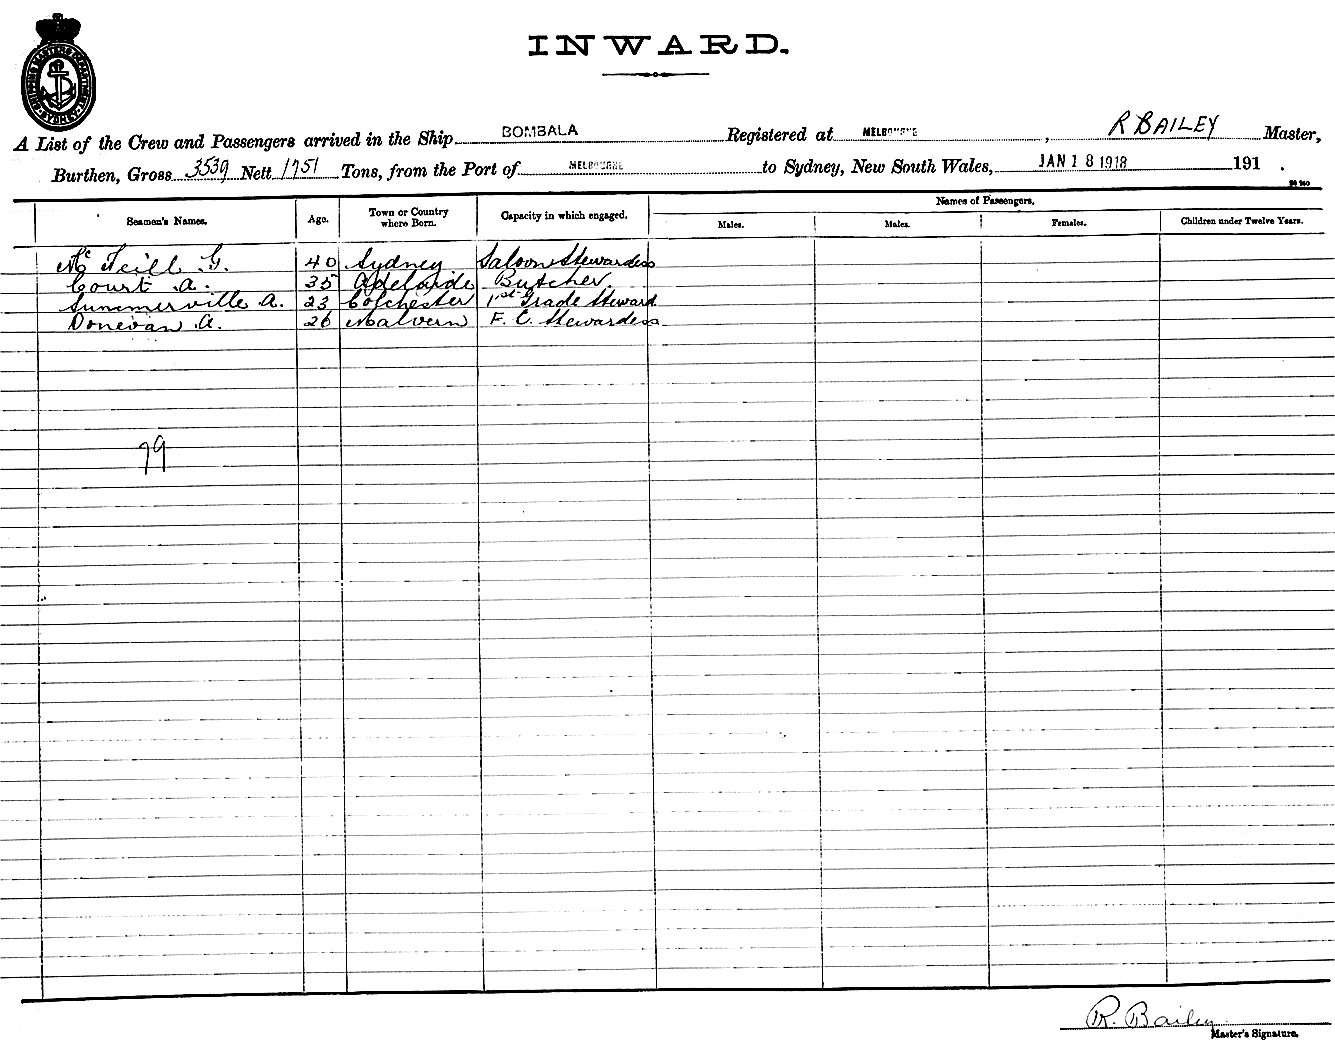 SHIPPING MASTERS DEPARTMENT SYDNEY
INWARD.
A List of the Crew and Passengers arrived in the Ship BOMBALA Registered at MELBOURNE, R BAILEY Master,
Burthen, Gross 3539 Nett 1751 Tons, from the Port of MELBOURNE to Sydney, New South Wales, JAN 18 1918 191 .
Names of Passengers.
Seamen's Names. Age. Town or Country where Born. Capacity in which engaged. Males. Males. Females. Children under Twelve Years.
Mc Neill G. 40 Sydney Saloon Stewardess
Court A. 35 Adelaide Butcher.
Summerville A. 23 Colchester 1st Grade Steward
Donevan A. 26 Malvern F. C. Stewardess
79
R. Bailey
Master's Signature.